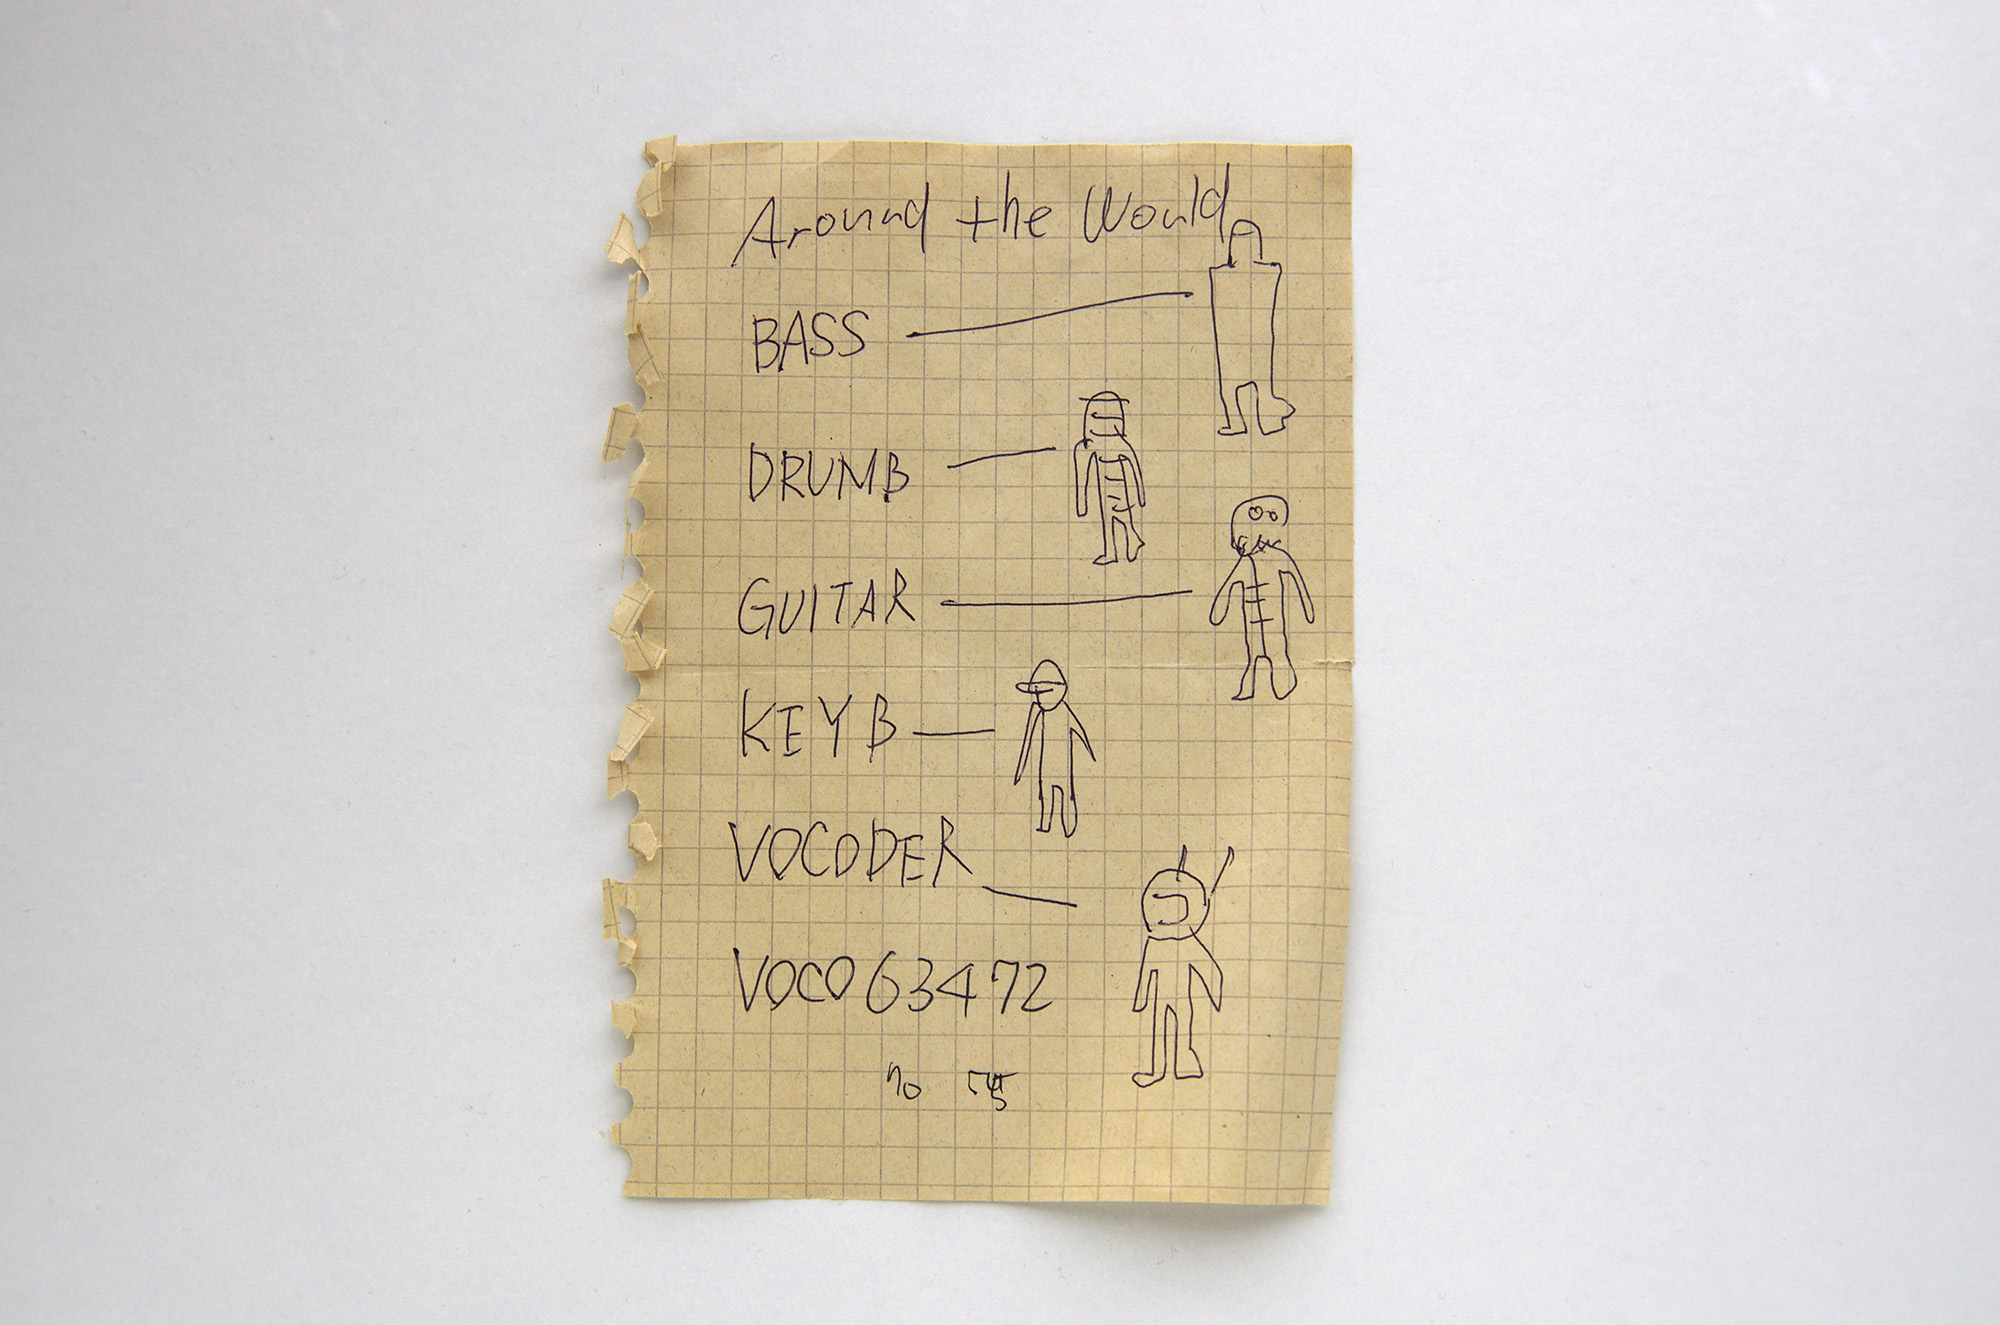 Around the Would
BASS
DRUMB
GUITAR
KEYB
VOCODER
VOCO63472